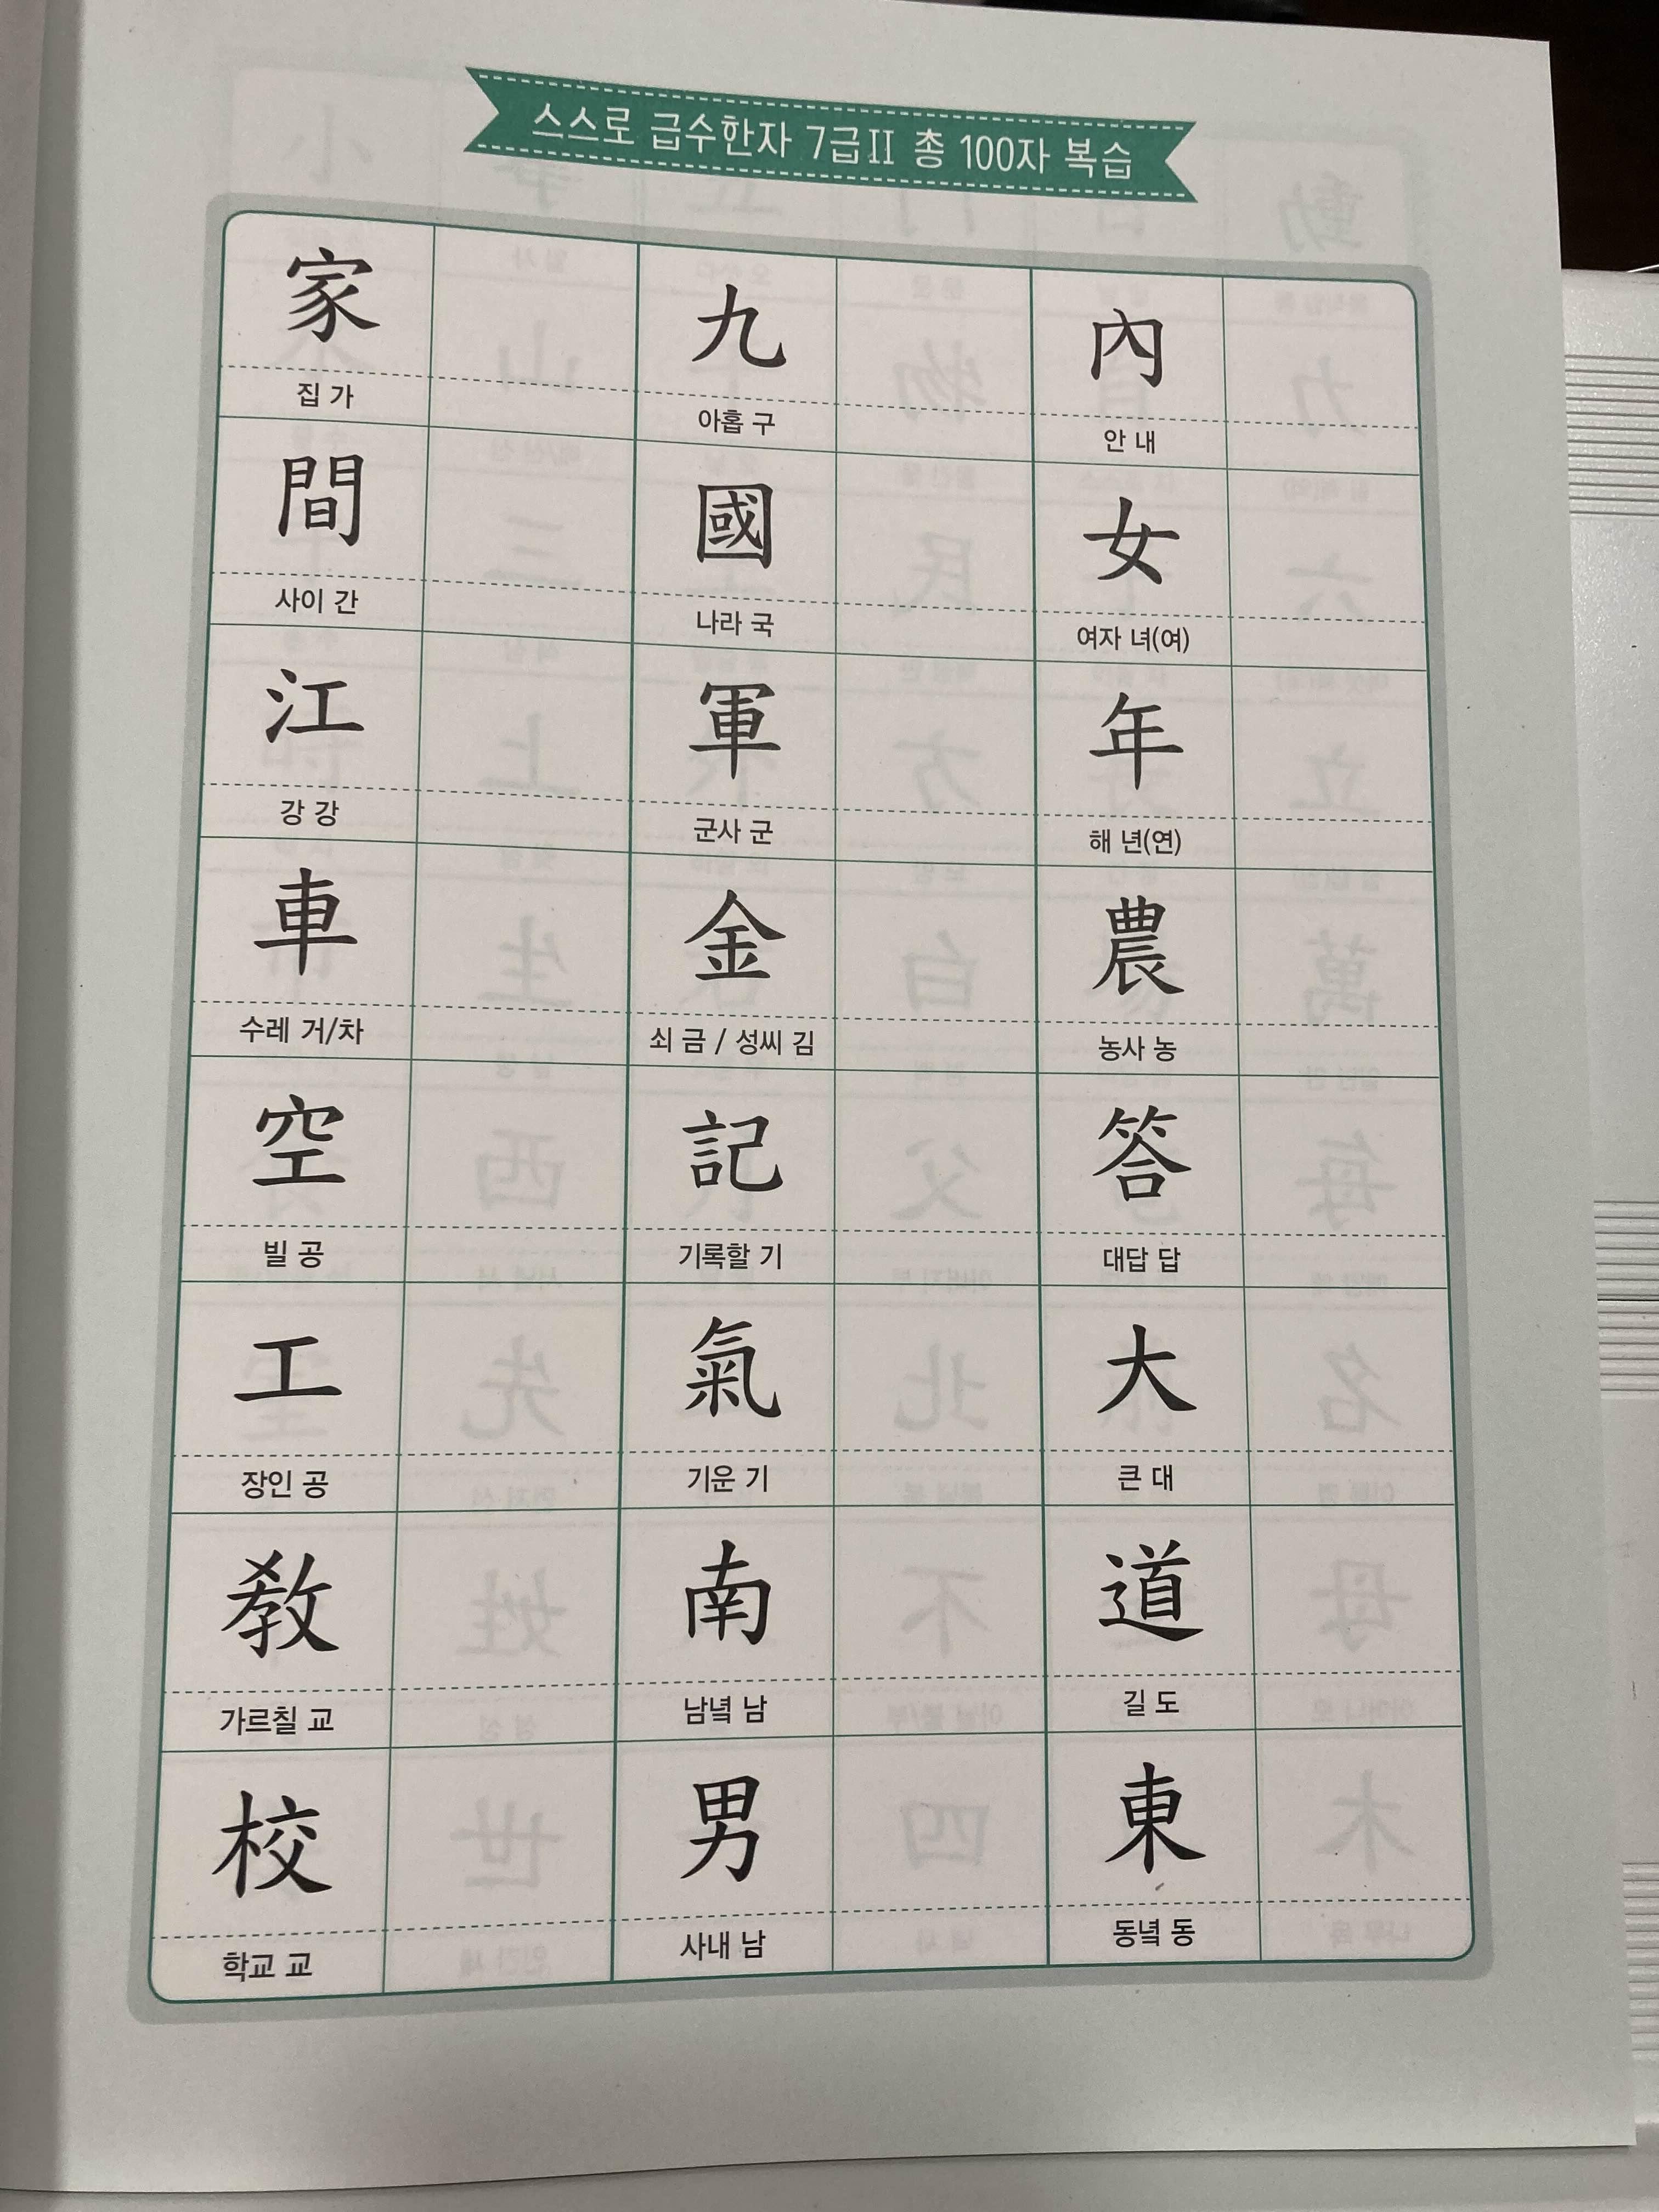 스스로 급수한자 7급Ⅱ 총 100자 복습
家 九 內
집 가 아홉 구 안 내
間 國 女
사이 간 나라 국 여자 녀(여)
江 軍 年
강 강 군사 군 해 년(연)
車 金 農
수레 거/차 쇠 금 / 성씨 김 농사 농
空 記 答
빌 공 기록할 기 대답 답
工 氣 大
장인 공 기운 기 큰 대
敎 南 道
가르칠 교 남녘 남 길 도
校 男 東
학교 교 사내 남 동녘 동